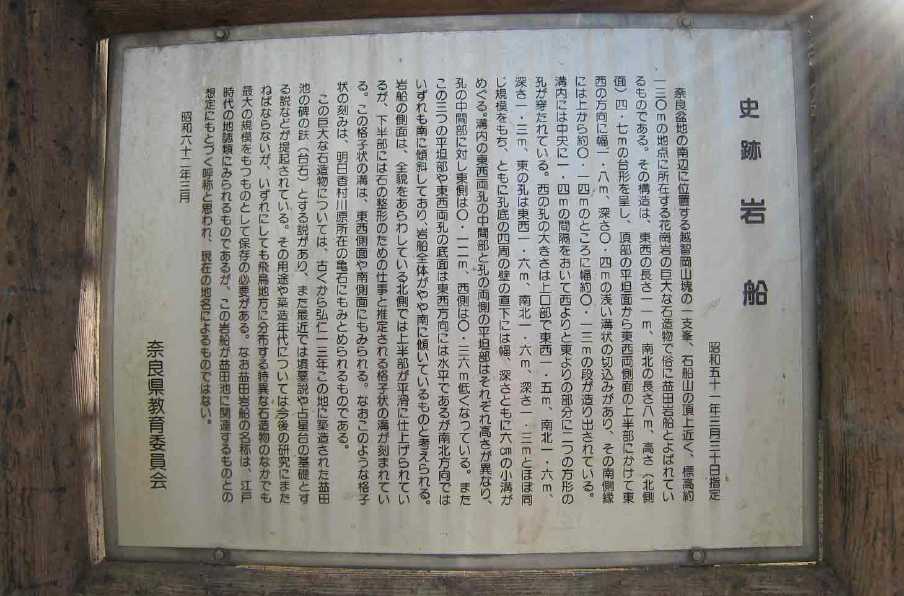 史跡 岩船
昭和五十一年三月三十日指定
奈良盆地の南辺に位置する越智岡山塊の一支峯、石船山の頂上近く、標高約
一三〇mの地点に所在する花崗岩の巨大な石造物で俗に益田岩船とよばれてい
るものである。その構造は、東西の長さ一一m、南北の長さ八m、高さ（北側
面）四・七mの台形を呈し、頂部の平坦面から東西両側面の上半部にかけて東
西の方向に幅一・八m、深さ〇・四mの浅い溝状の切込みがあり、その南側縁
には上から約〇・一四mのところに幅約〇・一三mの段が造り出されている。
溝内には中央に一・四mの間隔をおいて西よりと東よりの部分に二つの方形の
孔が穿たれている。西の孔の大きさは上口部で東西一・五m、南北一・六m、
深さ一・三m、東の孔は東西一・六m、南北一・六m、深さ一・三mとほぼ同
じ規模をもち、ともに孔底の四周の壁の直下には幅、深さともに六㎝の小溝が
めぐる。溝内の東西両孔の中間部と孔の両側の平坦部はそれぞれ高さが異なり、
孔の中間部に対し東側は〇・一二m、西側は〇・三六m低くなっている。また
この三つの平坦部や東西両孔の底面は東西方向には水平であるが南北方向では
いずれも南に傾斜しており、岩船全体がやや南に傾いているものと考えられる。
岩船の側面は、全貌をあらわしている北側では上半部が平滑に仕上げられてい
るが、下半部には石の整形のための仕事と推定される格子状の溝が刻まれてい
る。この格子状の溝は、東西側面や南側面にもみられる。なおこのような格子
状の刻みは、明日香村川原所在の亀石にもみとめられるものである。
この巨大な石造物については、古くから弘仁一三年この地に築造された益田
池の碑の趺（台石）とする説があり、また最近では墳墓説や占星台の基礎とす
る説などが提起されている。その用途や築造年代については今後の研究にまた
ねばならないが、いずれにしても飛鳥地方に分布する特異な石造物のなかでも
最大の規模をもつものとして保存の必要がある。なお益田岩船の名称は、江戸
時代の地誌類にみられるものであるが、この岩船が益田池に関連するものとの
想定にもとづく呼称と思われ、現在の地名によるものではない。
昭和六十二年三月
奈良県教育委員会